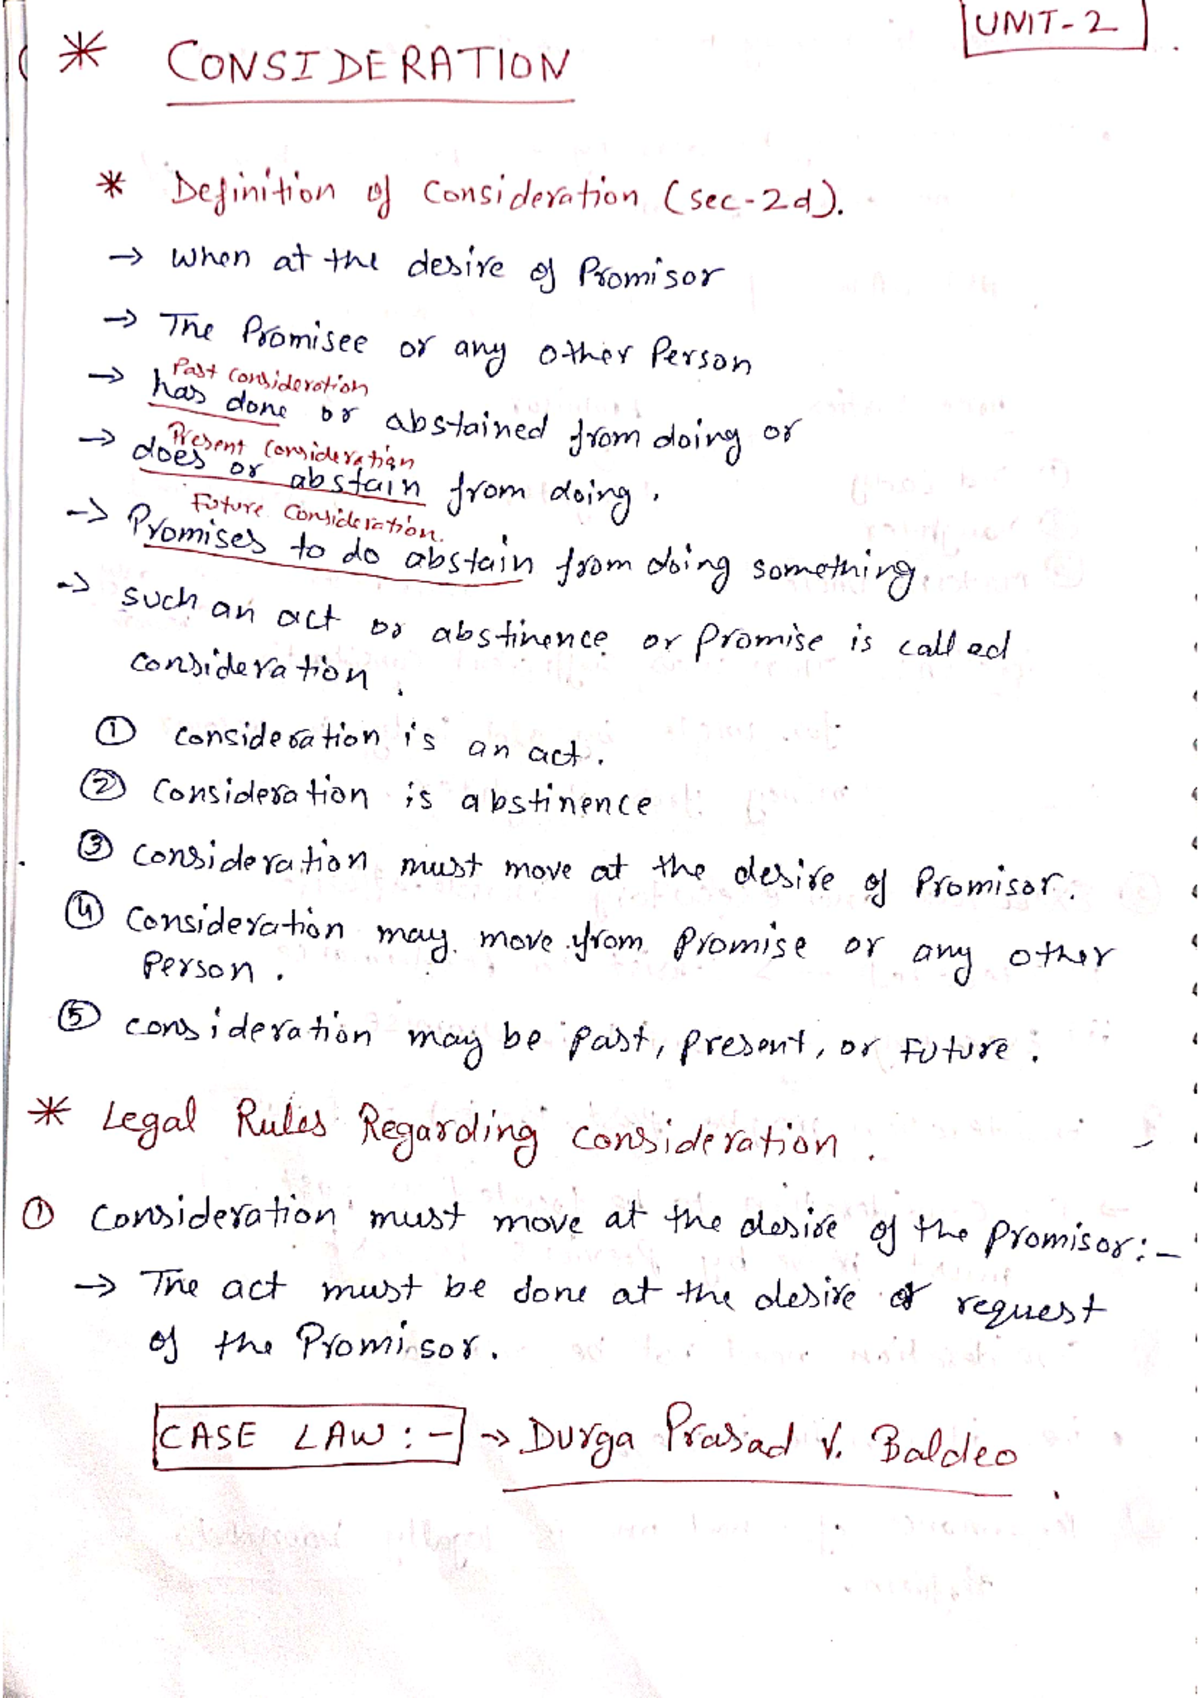 UNIT-2
* CONSIDERATION
* Definition of Consideration (sec-2d).
→ When at the desire of Promisor
→ The Promisee or any other Person
Past Consideration
→ has done or abstained from doing or
Present Consideration
→ does or abstain from doing.
Future Consideration.
→ Promises to do abstain from doing something.
→ such an act or abstinence or promise is called
consideration.
① consideration is an act.
② Consideration is abstinence
③ consideration must move at the desire of Promisor.
④ Consideration may move from promise or any other
Person.
⑤ consideration may be past, present, or Future.
* Legal Rules Regarding consideration.
① Consideration must move at the desire of the promisor:-
→ The act must be done at the desire or request
of the Promisor.
CASE LAW:- → Durga Prasad V. Baldeo